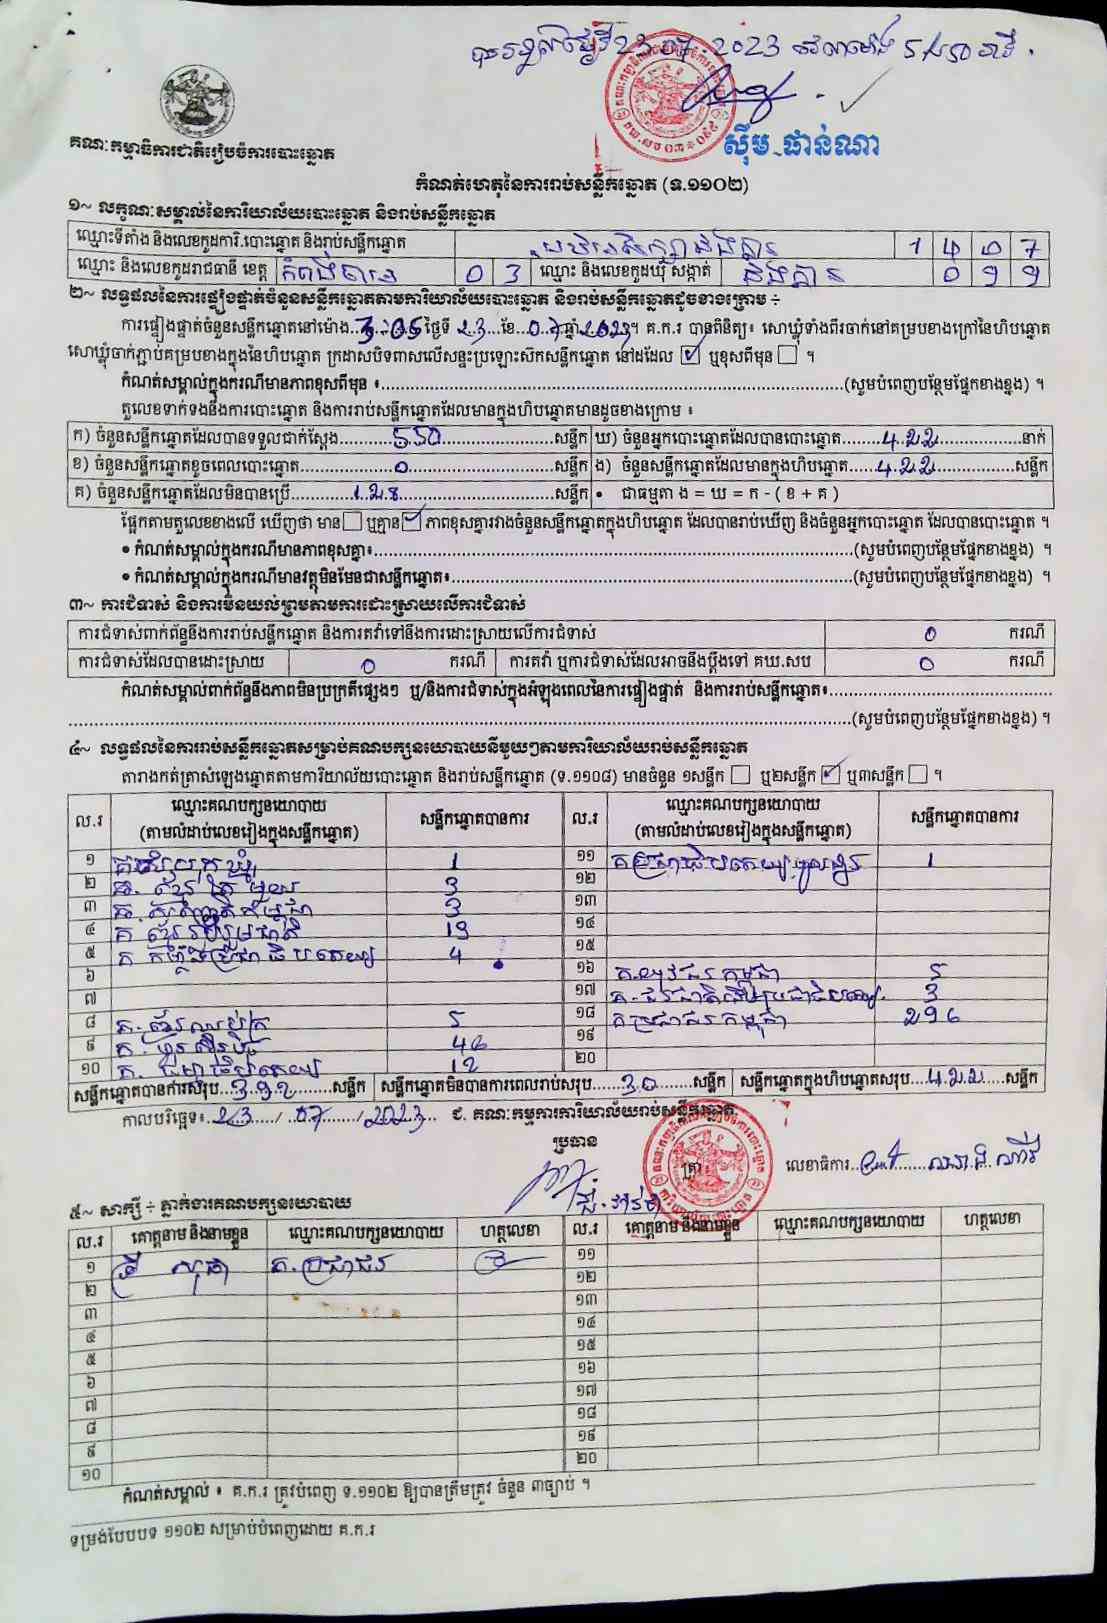 បានទទួលថ្ងៃទី 23.07.2023 វេលាម៉ោង 5:50 នាទី
ស៊ឹម ផាន់ណា
គណៈកម្មាធិការជាតិរៀបចំការបោះឆ្នោត
កំណត់ហេតុនៃការរាប់សន្លឹកឆ្នោត (ទ.១១០២)
១~ លក្ខណៈសម្គាល់នៃការិយាល័យបោះឆ្នោត និងរាប់សន្លឹកឆ្នោត
ឈ្មោះទីតាំង និងលេខកូដការិ.បោះឆ្នោត និងរាប់សន្លឹកឆ្នោត 1 4 0 7
ឈ្មោះ និងលេខកូដរាជធានី ខេត្ត កំពង់ចាម 0 3 ឈ្មោះ និងលេខកូដឃុំ សង្កាត់ 0 9 9
២~ លទ្ធផលនៃការផ្ទៀងផ្ទាត់ចំនួនសន្លឹកឆ្នោតតាមការិយាល័យបោះឆ្នោត និងរាប់សន្លឹកឆ្នោតដូចខាងក្រោម ÷
ការផ្ទៀងផ្ទាត់ចំនួនសន្លឹកឆ្នោតនៅម៉ោង 3:05 ថ្ងៃទី 23 ខែ 07 ឆ្នាំ 2023។ គ.ក.រ បានពិនិត្យ៖ សោឃ្លុំទាំងពីរចាក់នៅគម្របខាងក្រៅនៃហិបឆ្នោត
សោឃ្លុំចាក់ភ្ជាប់គម្របខាងក្នុងនៃហិបឆ្នោត ក្រដាសបិទពាសលើសន្ទះប្រឡោះសឹកសន្លឹកឆ្នោត នៅដដែល ☑ ឬខុសពីមុន ☐ ។
កំណត់សម្គាល់ក្នុងករណីមានភាពខុសពីមុន ៖...(សូមបំពេញបន្ថែមផ្នែកខាងខ្នង) ។
តួលេខទាក់ទងនឹងការបោះឆ្នោត និងការរាប់សន្លឹកឆ្នោតដែលមានក្នុងហិបឆ្នោតមានដូចខាងក្រោម ៖
ក) ចំនួនសន្លឹកឆ្នោតដែលបានទទួលជាក់ស្តែង...550...សន្លឹក ឃ) ចំនួនអ្នកបោះឆ្នោតដែលបានបោះឆ្នោត...422...នាក់
ខ) ចំនួនសន្លឹកឆ្នោតខូចពេលបោះឆ្នោត...0...សន្លឹក ង) ចំនួនសន្លឹកឆ្នោតដែលមានក្នុងហិបឆ្នោត...422...សន្លឹក
គ) ចំនួនសន្លឹកឆ្នោតដែលមិនបានប្រើ...128...សន្លឹក • ជាធម្មតា ង = ឃ = ក - ( ខ + គ )
ផ្អែកតាមតួលេខខាងលើ ឃើញថា មាន ☐ ឬគ្មាន ☑ ភាពខុសគ្នារវាងចំនួនសន្លឹកឆ្នោតក្នុងហិបឆ្នោត ដែលបានរាប់ឃើញ និងចំនួនអ្នកបោះឆ្នោត ដែលបានបោះឆ្នោត ។
• កំណត់សម្គាល់ក្នុងករណីមានភាពខុសគ្នា៖...(សូមបំពេញបន្ថែមផ្នែកខាងខ្នង) ។
• កំណត់សម្គាល់ក្នុងករណីមានវត្ថុមិនមែនជាសន្លឹកឆ្នោត៖...(សូមបំពេញបន្ថែមផ្នែកខាងខ្នង) ។
៣~ ការជំទាស់ និងការមិនយល់ព្រមតាមការដោះស្រាយលើការជំទាស់
ការជំទាស់ពាក់ព័ន្ធនឹងការរាប់សន្លឹកឆ្នោត និងការតវ៉ាទៅនឹងការដោះស្រាយលើការជំទាស់ 0 ករណី
ការជំទាស់ដែលបានដោះស្រាយ 0 ករណី ការតវ៉ា ឬការជំទាស់ដែលអាចនឹងប្តឹងទៅ គឃ.សប 0 ករណី
កំណត់សម្គាល់ពាក់ព័ន្ធនឹងភាពមិនប្រក្រតីផ្សេងៗ ឬ/និងការជំទាស់ក្នុងអំឡុងពេលនៃការផ្ទៀងផ្ទាត់ និងការរាប់សន្លឹកឆ្នោត៖...
...(សូមបំពេញបន្ថែមផ្នែកខាងខ្នង) ។
៤~ លទ្ធផលនៃការរាប់សន្លឹកឆ្នោតសម្រាប់គណបក្សនយោបាយនីមួយៗតាមការិយាល័យរាប់សន្លឹកឆ្នោត
តារាងកត់ត្រាសំឡេងឆ្នោតតាមការិយាល័យបោះឆ្នោត និងរាប់សន្លឹកឆ្នោត (ទ.១១០៨) មានចំនួន ១សន្លឹក ☐ ឬ២សន្លឹក ☑ ឬ៣សន្លឹក ☐ ។
ល.រ ឈ្មោះគណបក្សនយោបាយ (តាមលំដាប់លេខរៀងក្នុងសន្លឹកឆ្នោត) សន្លឹកឆ្នោតបានការ ល.រ ឈ្មោះគណបក្សនយោបាយ (តាមលំដាប់លេខរៀងក្នុងសន្លឹកឆ្នោត) សន្លឹកឆ្នោតបានការ
១ គ សំបុកឃ្មុំ 1 ១១ 1
២ គ. ខ្មែរតែមួយ 3 ១២
៣ គ. សញ្ជាតិកម្ពុជា 3 ១៣
៤ គ ខ្មែររួបរួមជាតិ 19 ១៤
៥ គ កម្លាំងប្រជាធិបតេយ្យ 4 ១៥
៦ ១៦ គ.យុវជនកម្ពុជា 5
៧ ១៧ 3
៨ គ. ខ្មែរឈប់ក្រ 5 ១៨ គ ប្រជាជនកម្ពុជា 296
៩ គ. ហ៊្វុនស៊ិនប៉ិច 46 ១៩
១០ គ. ធម្មាធិបតេយ្យ 12 ២០
សន្លឹកឆ្នោតបានការសរុប...392...សន្លឹក សន្លឹកឆ្នោតមិនបានការពេលរាប់សរុប...30...សន្លឹក សន្លឹកឆ្នោតក្នុងហិបឆ្នោតសរុប...422...សន្លឹក
កាលបរិច្ឆេទ៖ 23/07/2023 ជ. គណៈកម្មការការិយាល័យរាប់សន្លឹកឆ្នោត
ប្រធាន
លេខាធិការ
៥~ សាក្សី ÷ ភ្នាក់ងារគណបក្សនយោបាយ
ល.រ គោត្តនាម និងនាមខ្លួន ឈ្មោះគណបក្សនយោបាយ ហត្ថលេខា ល.រ គោត្តនាម និងនាមខ្លួន ឈ្មោះគណបក្សនយោបាយ ហត្ថលេខា
១ គ. ប្រជាជន ១១
២ ១២
៣ ១៣
៤ ១៤
៥ ១៥
៦ ១៦
៧ ១៧
៨ ១៨
៩ ១៩
១០ ២០
កំណត់សម្គាល់ ៖ គ.ក.រ ត្រូវបំពេញ ទ.១១០២ ឱ្យបានត្រឹមត្រូវ ចំនួន ៣ច្បាប់ ។
ទម្រង់បែបបទ ១១០២ សម្រាប់បំពេញដោយ គ.ក.រ